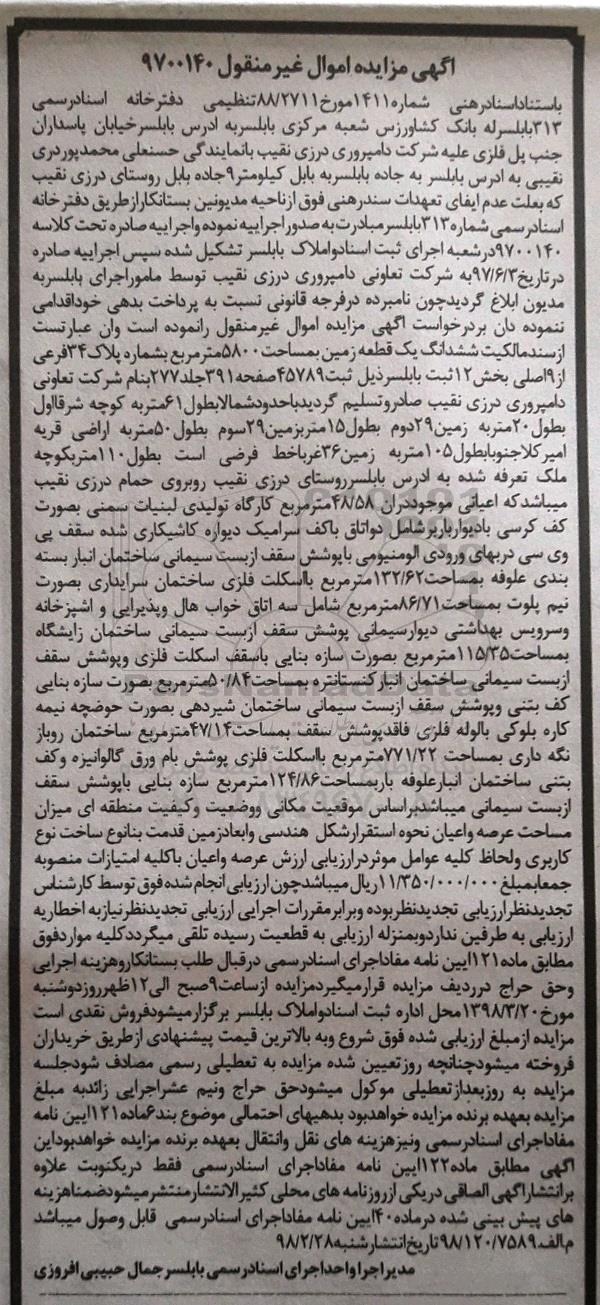 اگهی مزایده اموال غیرمنقول ۹۷۰۰۱۴۰
باستناداسنادرهنی شماره۱۴۱۱مورخ۸۸/۲۷۱۱تنظیمی دفترخانه اسنادرسمی
۳۱۳بابلسرله بانک کشاورزس شعبه مرکزی بابلسربه ادرس بابلسرخیابان پاسداران
جنب پل فلزی علیه شرکت دامپروری درزی نقیب بانمایندگی حسنعلی محمدپوردری
نقیبی به ادرس بابلسر به جاده بابلسربه بابل کیلومتر۹جاده بابل روستای درزی نقیب
که بعلت عدم ایفای تعهدات سندرهنی فوق ازناحیه مدیونین بستانکارازطریق دفترخانه
اسنادرسمی شماره۳۱۳بابلسرمبادرت به صدوراجراییه نموده واجراییه صادره تحت کلاسه
۹۷۰۰۱۴۰درشعبه اجرای ثبت اسنادواملاک بابلسر تشکیل شده سپس اجراییه صادره
درتاریخ۹۷/۶/۳به شرکت تعاونی دامپروری درزی نقیب توسط ماموراجرای بابلسربه
مدیون ابلاغ گردیدچون نامبرده درفرجه قانونی نسبت به پرداخت بدهی خوداقدامی
ننموده دان بردرخواست اگهی مزایده اموال غیرمنقول رانموده است وان عبارتست
ازسندمالکیت ششدانگ یک قطعه زمین بمساحت۵۸۰۰مترمربع بشماره پلاک۳۴فرعی
از۹اصلی بخش۱۲ثبت بابلسرذیل ثبت۴۵۷۸۹صفحه۳۹۱جلد۲۷۷بنام شرکت تعاونی
دامپروری درزی نقیب صادروتسلیم گردیدباحدودشمالابطول۶۱متربه کوچه شرقااول
بطول۲۰متربه زمین۲۹دوم بطول۱۵متربزمین۲۹سوم بطول۵۰متربه اراضی قریه
امیرکلاجنوبابطول۱۰۵متربه زمین۳۶غرباخط فرضی است بطول۱۱۰متربکوچه
ملک تعرفه شده به ادرس بابلسرروستای درزی نقیب روبروی حمام درزی نقیب
میباشدکه اعیانی موجوددران ۴۸/۵۸مترمربع کارگاه تولیدی لبنیات سمنی بصورت
کف کرسی بادیواربارپرشامل دواتاق باکف سرامیک دیواره کاشیکاری شده سقف پی
وی سی دربهای ورودی الومنیومی باپوشش سقف ازبست سیمانی ساختمان انبار بسته
بندی علوفه بمساحت۱۳۲/۶۲مترمربع بااسکلت فلزی ساختمان سرایداری بصورت
نیم پلوت بمساحت۸۶/۷۱مترمربع شامل سه اتاق خواب هال وپذیرایی و اشپزخانه
وسرویس بهداشتی دیوارسیمانی پوشش سقف ازبست سیمانی ساختمان زایشگاه
بمساحت۱۱۵/۳۵مترمربع بصورت سازه بنایی باسقف اسکلت فلزی وپوشش سقف
ازبست سیمانی ساختمان انبارکنستانتره بمساحت۵۰/۸۴مترمربع بصورت سازه بنایی
کف بتنی وپوشش سقف ازبست سیمانی ساختمان شیردهی بصورت حوضچه نیمه
کاره بلوکی بالوله فلزی فاقدپوشش سقف بمساحت۴۷/۱۴مترمربع ساختمان روباز
نگه داری بمساحت ۷۷۱/۲۲مترمربع بااسکلت فلزی پوشش بام ورق گالوانیزه وکف
بتنی ساختمان انبارعلوفه باربمساحت۱۲۴/۸۶مترمربع سازه بنایی باپوشش سقف
ازبست سیمانی میباشدبراساس موقعیت مکانی ووضعیت وکیفیت منطقه ای میزان
مساحت عرصه واعیان نحوه استقرارشکل هندسی وابعادزمین قدمت بنانوع ساخت نوع
کاربری ولحاظ کلیه عوامل موثردرارزیابی ارزش عرصه واعیان باکلیه امتیازات منصوبه
جمعابمبلغ۱۱/۳۵۰/۰۰۰/۰۰۰ریال میباشدچون ارزیابی انجام شده فوق توسط کارشناس
تجدیدنظرارزیابی تجدیدنظربوده وبرابرمقررات اجرایی ارزیابی تجدیدنظرنیازبه اخطاریه
ارزیابی به طرفین نداردوبمنزله ارزیابی به قطعیت رسیده تلقی میگرددکلیه مواردفوق
مطابق ماده۱۲۱ایین نامه مفاداجرای اسنادرسمی درقبال طلب بستانکاروهزینه اجرایی
وحق حراج درردیف مزایده قرارمیگیردمزایده ازساعت۹صبح الی۱۲ظهرروزدوشنبه
مورخ۱۳۹۸/۳/۲۰محل اداره ثبت اسنادواملاک بابلسر برگزارمیشودفروش نقدی است
مزایده ازمبلغ ارزیابی شده فوق شروع وبه بالاترین قیمت پیشنهادی ازطریق خریداران
فروخته میشودچنانچه روزتعیین شده مزایده به تعطیلی رسمی مصادف شودجلسه
مزایده به روزبعدازتعطیلی موکول میشودحق حراج ونیم عشراجرایی زائدبه مبلغ
مزایده بعهده برنده مزایده خواهدبود بدهیهای احتمالی موضوع بند۶ماده۱۲۱ایین نامه
مفاداجرای اسنادرسمی ونیزهزینه های نقل وانتقال بعهده برنده مزایده خواهدبوداین
اگهی مطابق ماده۱۲۲ایین نامه مفاداجرای اسنادرسمی فقط دریکنوبت علاوه
برانتشاراگهی الصاقی دریکی ازروزنامه های محلی کثیرالانتشارمنتشرمیشودضمناهزینه
های پیش بینی شده درماده۴۰ایین نامه مفاداجرای اسنادرسمی قابل وصول میباشد
م.الف.۹۸/۱۲۰/۷۵۸۹تاریخ انتشارشنبه۹۸/۲/۲۸
مدیراجراواحداجرای اسنادرسمی بابلسرجمال حبیبی افروزی